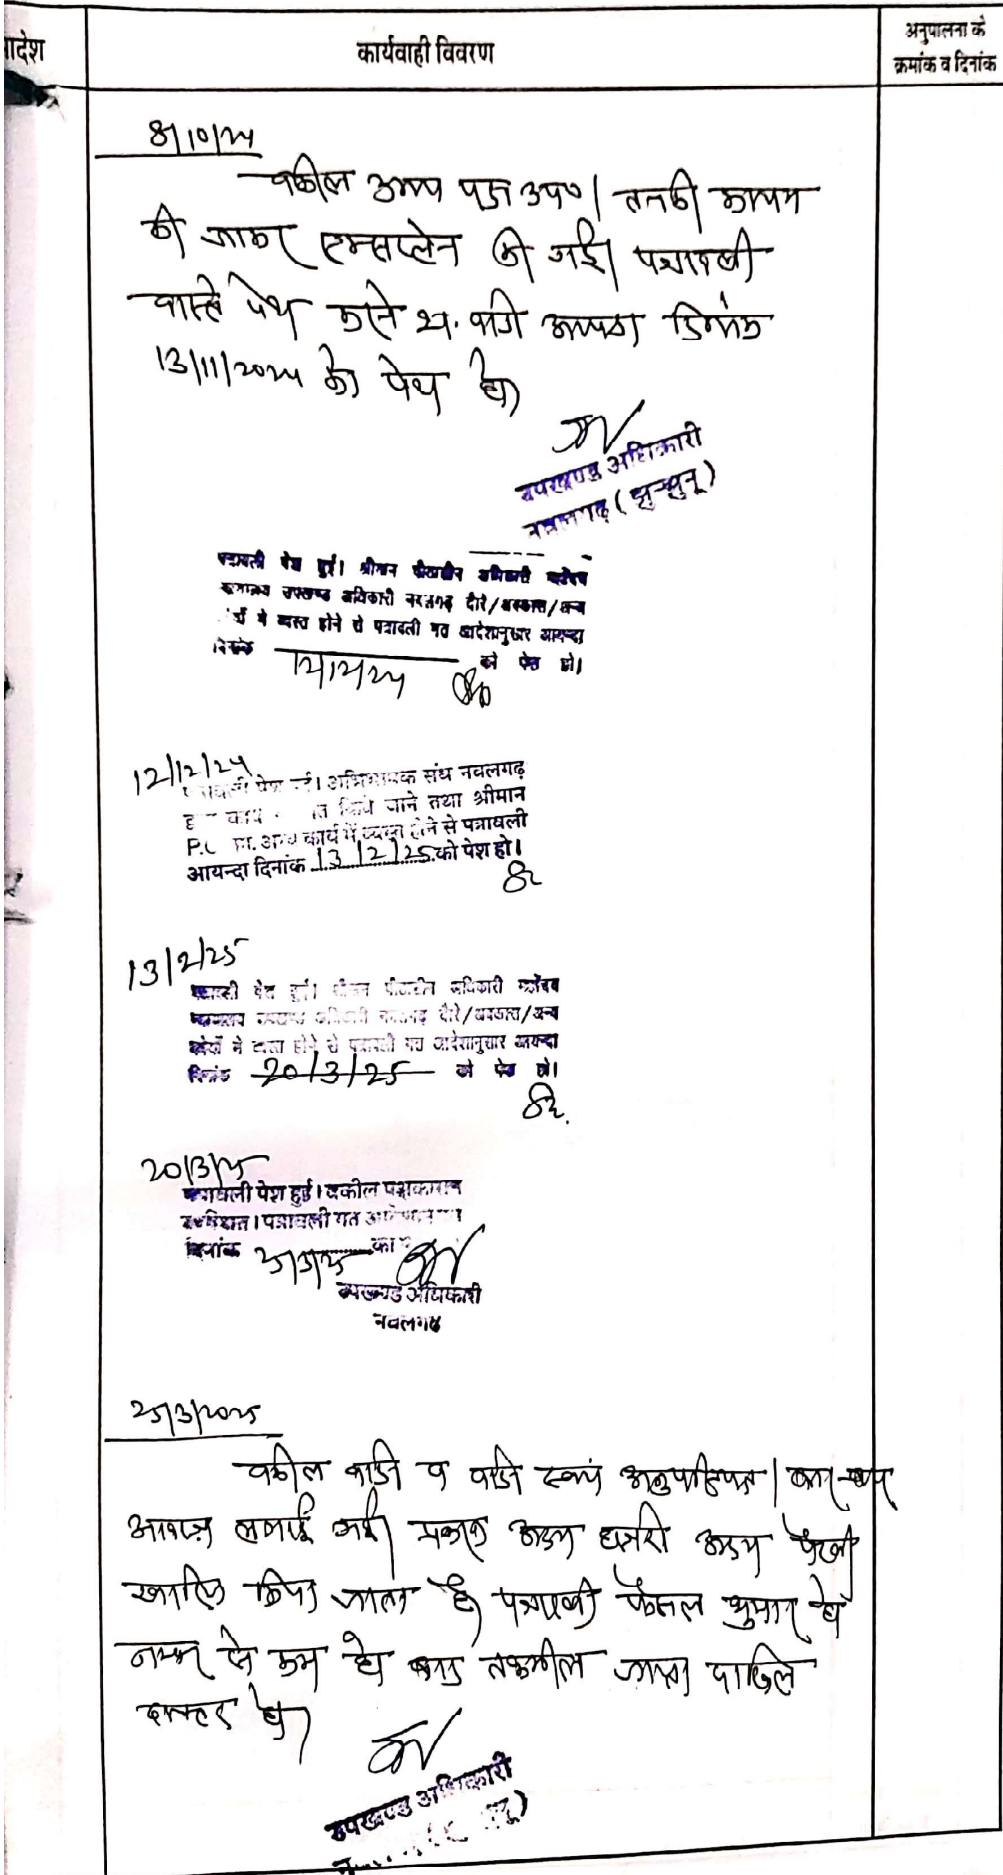 ादेश
कार्यवाही विवरण
अनुपालना के
क्रमांक व दिनांक
8/10/24
वकील उभय पक्ष उप०। तनकी कायम
की जाकर एक्सप्लेन की गई। पत्रावली
वास्ते पेश करने श. वादी दिनांक
13/11/2024 को पेश हो
उपखण्ड अधिकारी
नवलगढ़ (झुन्झुनू)
पत्रावली पेश हुई। श्रीमान पीठासीन अधिकारी महोदय
उपखण्ड अधिकारी नवलगढ़ दौरे/अवकाश/अन्य
में व्यस्त होने से पत्रावली गत आदेशानुसार आयन्दा
दिनांक 12/12/24 को पेश हो।
12/12/24
पत्रावली पेश हुई। अभिभाषक संघ नवलगढ़
किये जाने तथा श्रीमान
अन्य कार्य में व्यस्त होने से पत्रावली
आयन्दा दिनांक 13/2/25 को पेश हो।
13/2/25
पत्रावली पेश हुई। श्रीमान पीठासीन अधिकारी महोदय
न्यायालय उपखण्ड अधिकारी नवलगढ़ दौरे/अवकाश/अन्य
कार्यों में व्यस्त होने से पत्रावली गत आदेशानुसार आयन्दा
दिनांक 20/3/25 को पेश हो।
20/3/25
पत्रावली पेश हुई। वकील पक्षकारान
उपस्थित। पत्रावली गत
दिनांक 25/3/25 को
उपखण्ड अधिकारी
नवलगढ़
25/3/2025
वकील वादी व वादी स्वयं अनुपस्थित। बार-बार
आवाज लगाई गई। प्रकरण अदम हाजरी अदम पैरवी
खारिज किया जाता है। पत्रावली फैसल शुमार हो
नम्बर से कम हो बाद तकमील जाब्ता दाखिल
दफ्तर हो।
उपखण्ड अधिकारी